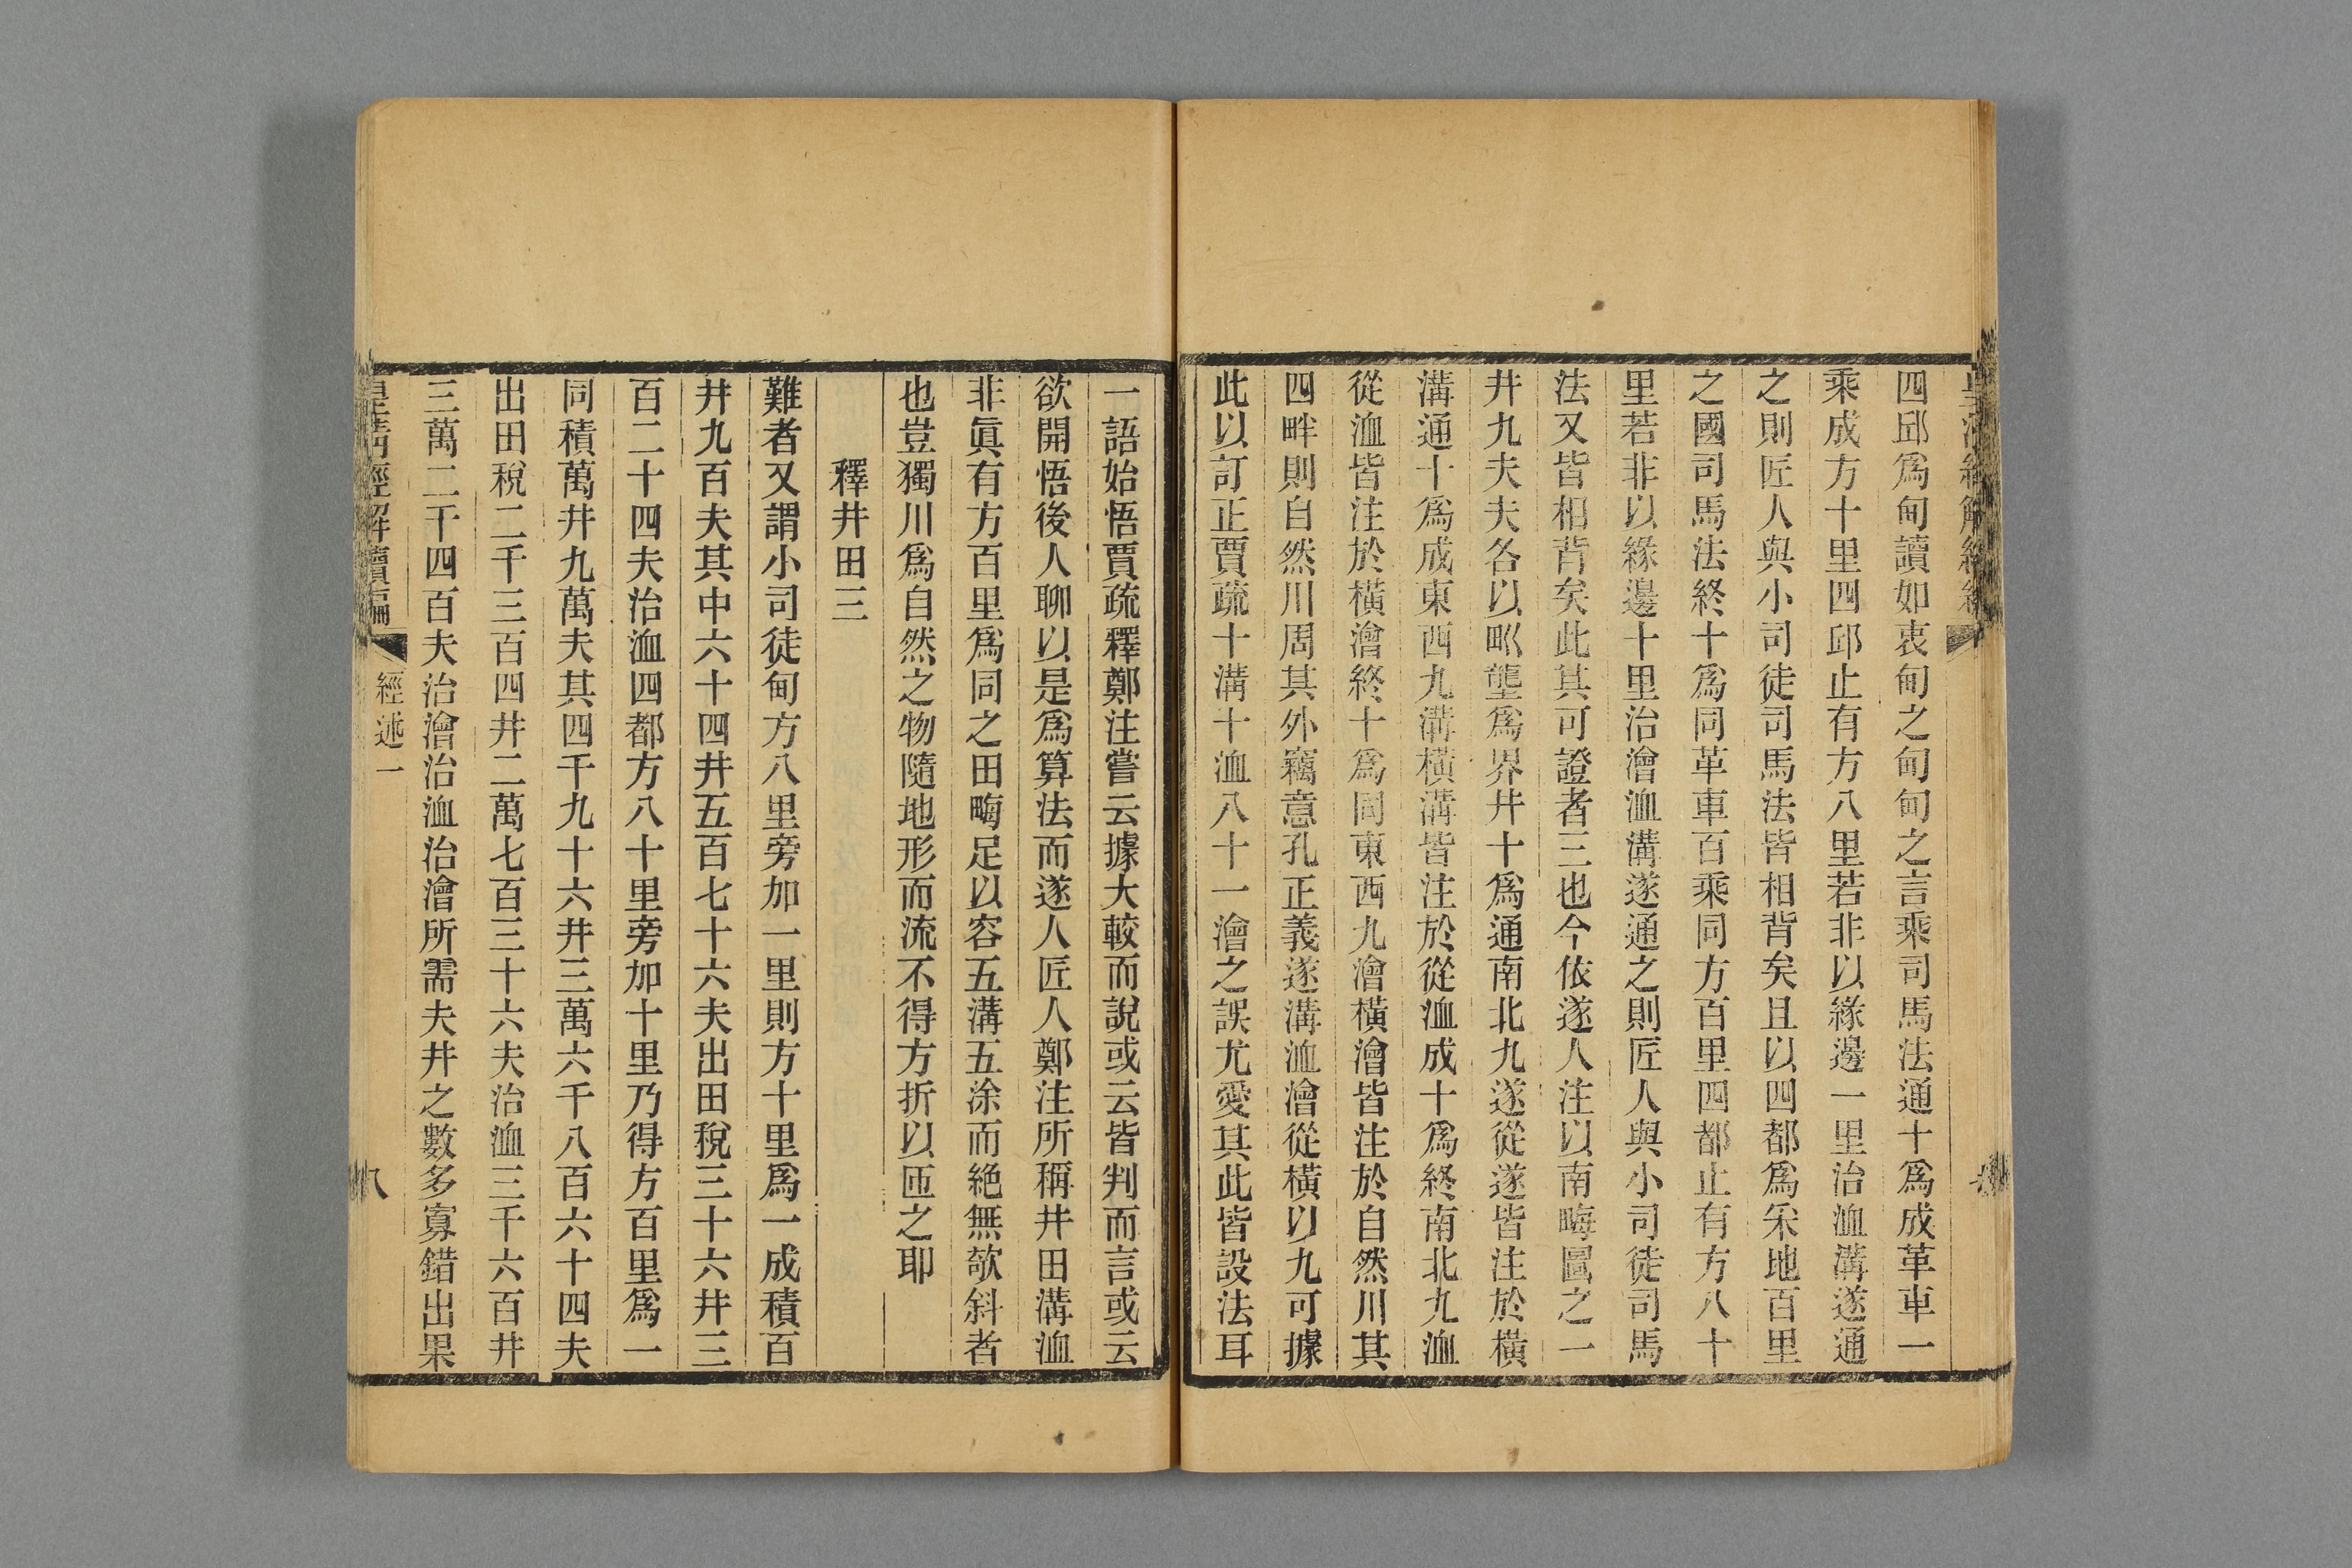 四邱爲甸讀如衷甸之甸甸之言乘司馬法通十爲成革車一
乘成方十里四邱止有方八里若非以緣邊一里治洫溝遂通
之則匠人與小司徒司馬法皆相背矣且以四都爲采地百里
之國司馬法終十爲同革車百乘同方百里四都止有方八十
里若非以緣邊十里治澮洫溝遂通之則匠人與小司徒司馬
法又皆相背矣此其可證者三也今依遂人注以南畮圖之一
井九夫夫各以甿壟爲界井十爲通南北九遂從遂皆注於橫
溝通十爲成東西九溝橫溝皆注於從洫成十爲終南北九洫
從洫皆注於橫澮終十爲同東西九澮橫澮皆注於自然川其
四畔則自然川周其外竊意孔正義遂溝洫澮從橫以九可據
此以訂正賈疏十溝十洫八十一澮之誤尤愛其此皆設法耳
一語始悟賈疏釋鄭注嘗云據大較而說或云皆判而言或云
欲開悟後人聊以是爲算法而遂人匠人鄭注所稱井田溝洫
非眞有方百里爲同之田畮足以容五溝五涂而絶無欹斜者
也豈獨川爲自然之物隨地形而流不得方折以匝之耶
釋井田三
難者又謂小司徒甸方八里旁加一里則方十里爲一成積百
井九百夫其中六十四井五百七十六夫出田稅三十六井三
百二十四夫治洫四都方八十里旁加十里乃得方百里爲一
同積萬井九萬夫其四千九十六井三萬六千八百六十四夫
出田稅二千三百四井二萬七百三十六夫治洫三千六百井
三萬二千四百夫治澮治洫治澮所需夫井之數多寡錯出果
皇淸經解續編
經述一
八